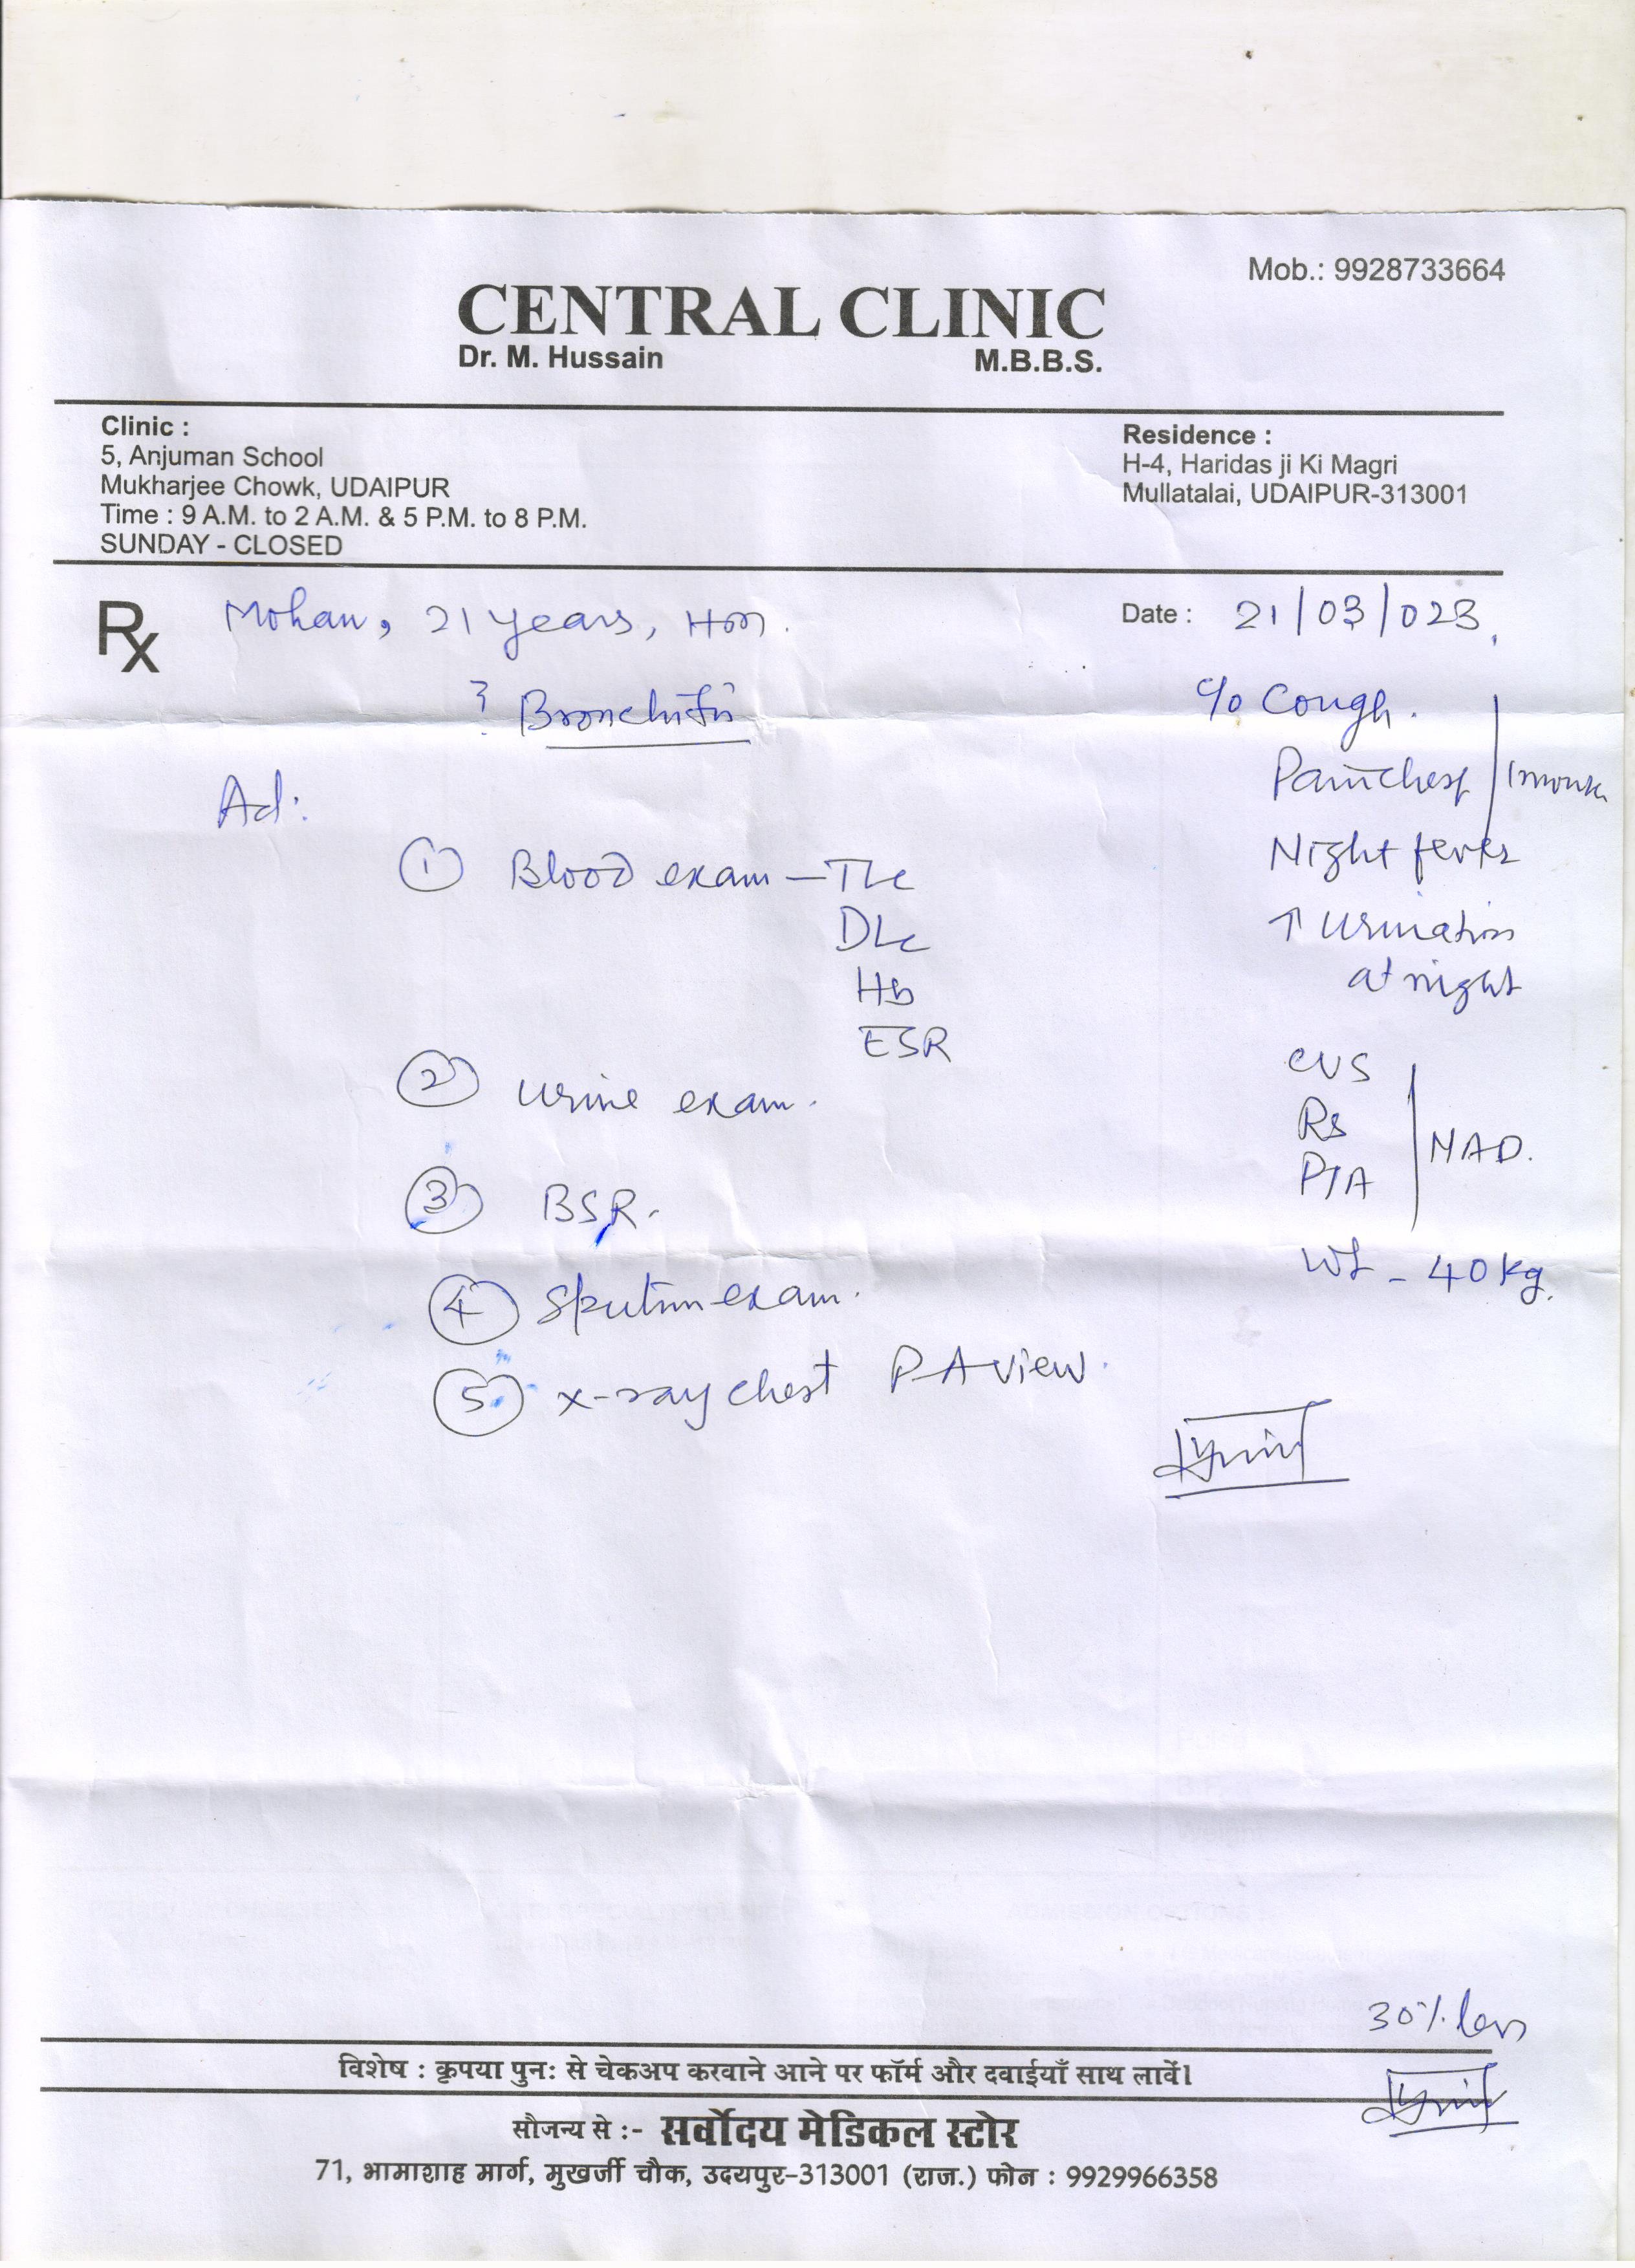 Mob.: 9928733664
CENTRAL CLINIC
Dr. M. Hussain M.B.B.S.
Clinic :
5, Anjuman School
Mukharjee Chowk, UDAIPUR
Time : 9 A.M. to 2 A.M. & 5 P.M. to 8 P.M.
SUNDAY - CLOSED
Residence :
H-4, Haridas ji Ki Magri
Mullatalai, UDAIPUR-313001
Rx Mohan, 21 years, Hm.
Date : 21/03/023.
? Bronchitis
Ad:
① Blood exam – TLC
DLC
Hb
ESR
② Urine exam.
③ BSR.
④ Sputum exam.
⑤ x-ray chest P A view.
c/o Cough.
Pain chest 1 month
Night fever
↑ Urination
at night
CVS
RS
P/A
NAD.
Wt - 40 kg.
30% less
विशेष : कृपया पुनः से चेकअप करवाने आने पर फॉर्म और दवाईयाँ साथ लावें।
सौजन्य से :- सर्वोदय मेडिकल स्टोर
71, भामाशाह मार्ग, मुखर्जी चौक, उदयपुर-313001 (राज.) फोन : 9929966358